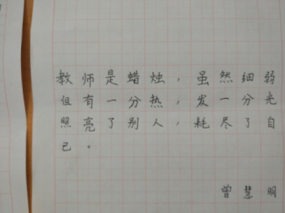 教师是蜡烛，虽然细弱
但有一分热，发一分光
照亮了别人，耗尽了自
己。
曾慧明